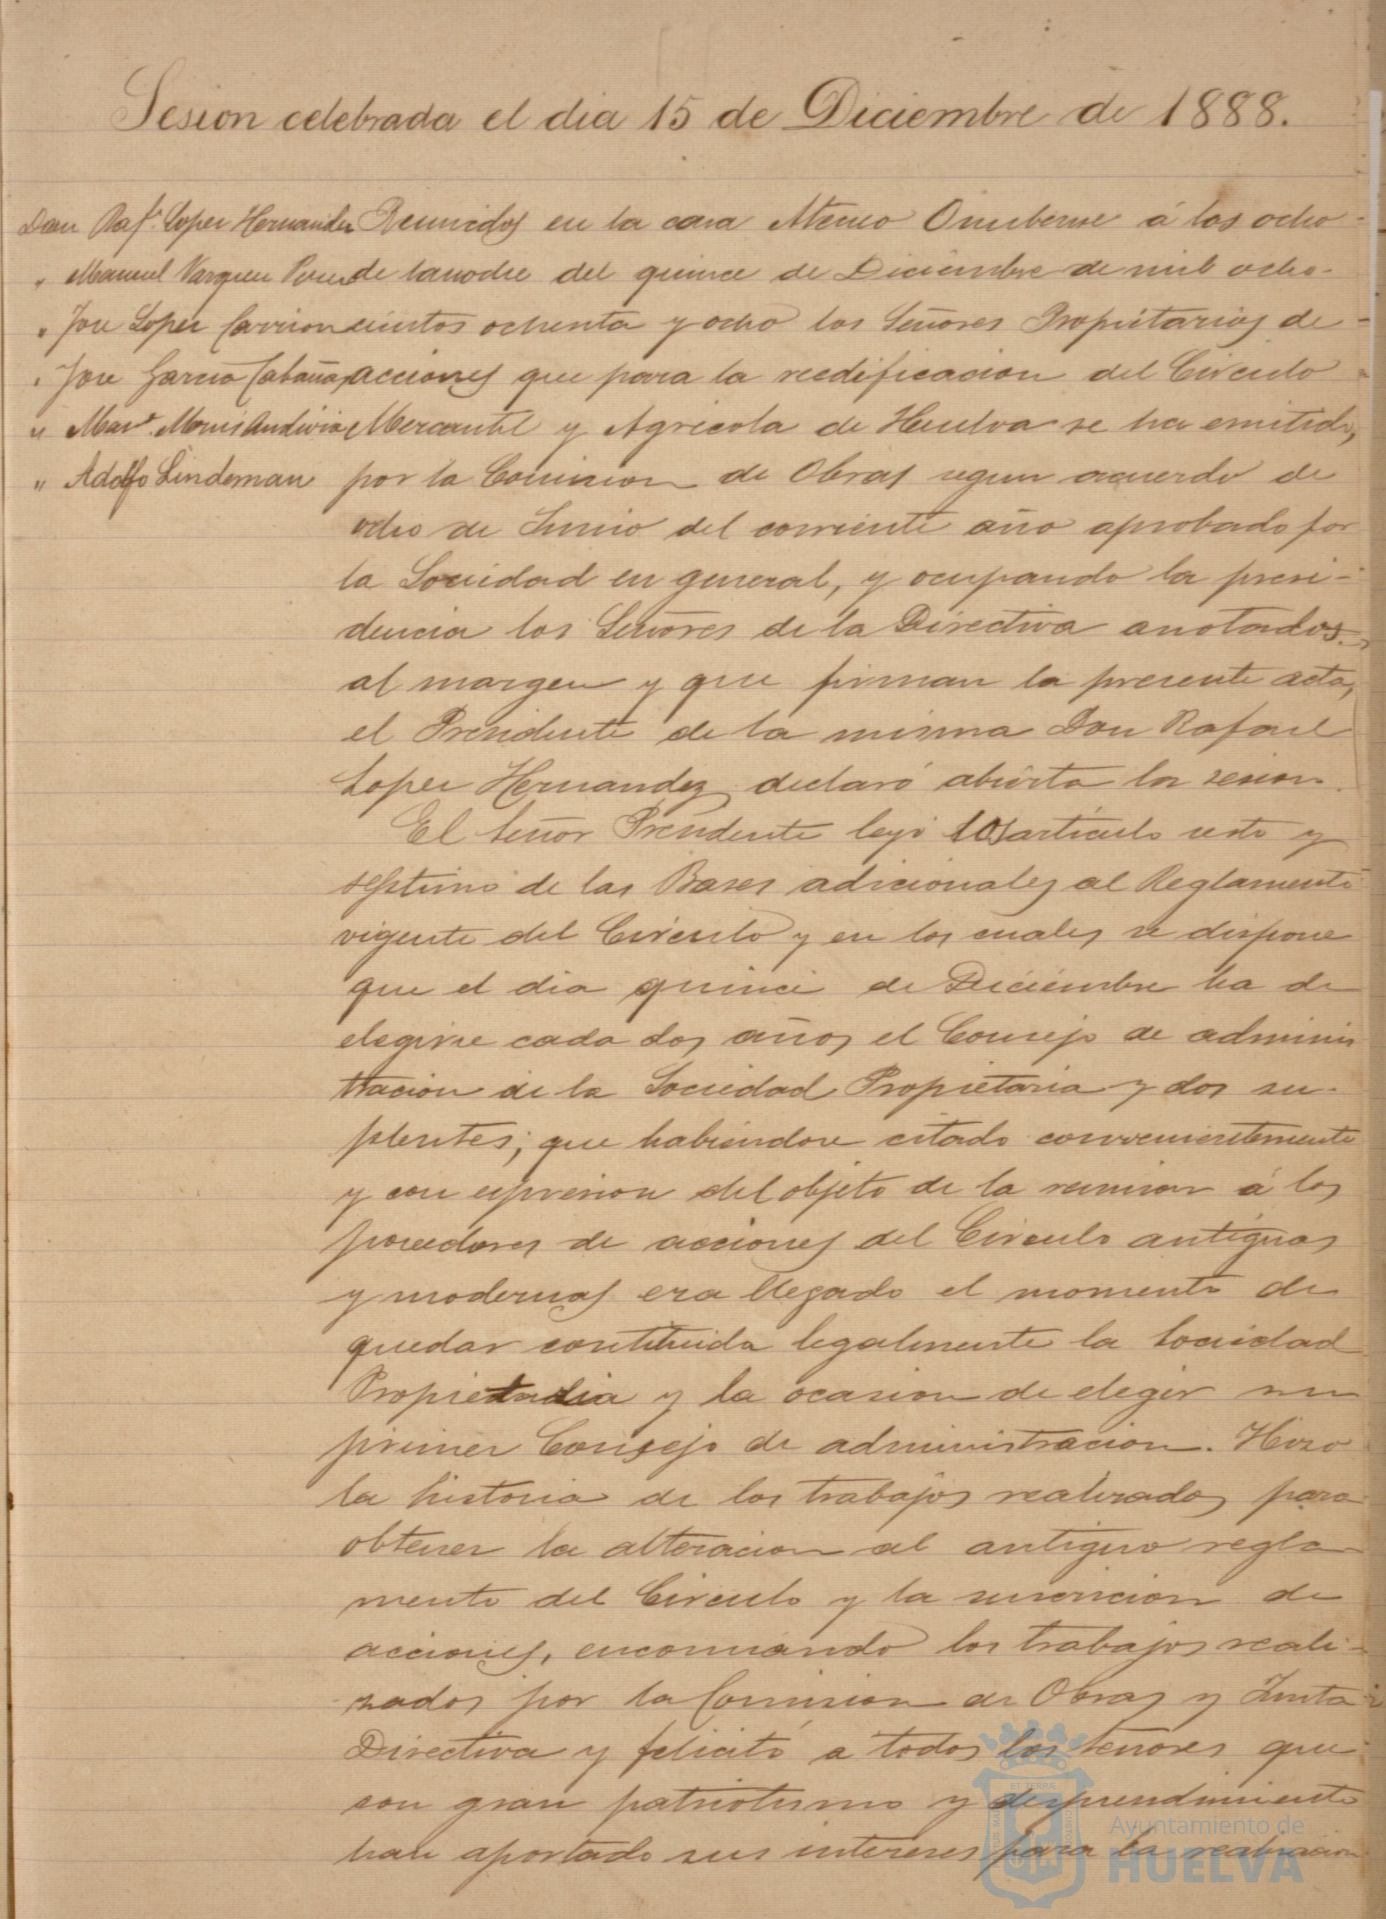 Sesion celebrada el dia 15 de Diciembre de 1888.
Don Raf.l Lopez Hernandez
" Manuel Vazquez Perez
" Jose Lopez Carrion
" Jose Garcia Cabañas
" Man.l Monis Andivia
" Adolfo Lindeman
Reunidos en la casa Ateneo Onubense á las ocho
de la noche del quince de Diciembre de mil ocho-
cientos ochenta y ocho los Señores Propietarios de
acciones que para la reedificacion del Circulo
Mercantil y Agricola de Huelva se ha emitido,
por la Comision de Obras segun acuerdo de
ocho de Junio del corriente año aprobado por
la Sociedad en general, y ocupando la presi-
dencia los Señores de la Directiva anotados
al margen y que firman la presente acta,
el Presidente de la misma Don Rafael
Lopez Hernandez declaró abierta la sesion.
El Señor Presidente leyó los articulo sesto y
septimo de las Bases adicionales al Reglamento
vigente del Circulo y en los cuales se dispone
que el dia quince de Diciembre ha de
elegirse cada dos años el Consejo de adminis
tracion de la Sociedad Propietaria y dos su-
plentes; que habiendose citado convenientemente
y con espresion del objeto de la reunion á los
poseedores de acciones del Circulo antiguas
y modernas era llegado el momento de
quedar constituida legalmente la Sociedad
Propietaria y la ocasion de elegir su
primer Consejo de administracion. Hizo
la historia de los trabajos realizados para
obtener la alteracion al antiguo regla-
mento del Circulo y la suscricion de
acciones, encomiando los trabajos reali-
zados por la Comision de Obras y Junta
Directiva y felicitó a todos los Señores que
con gran patriotismo y desprendimiento
han aportado sus intereses para la realizacion
Ayuntamiento de
HUELVA